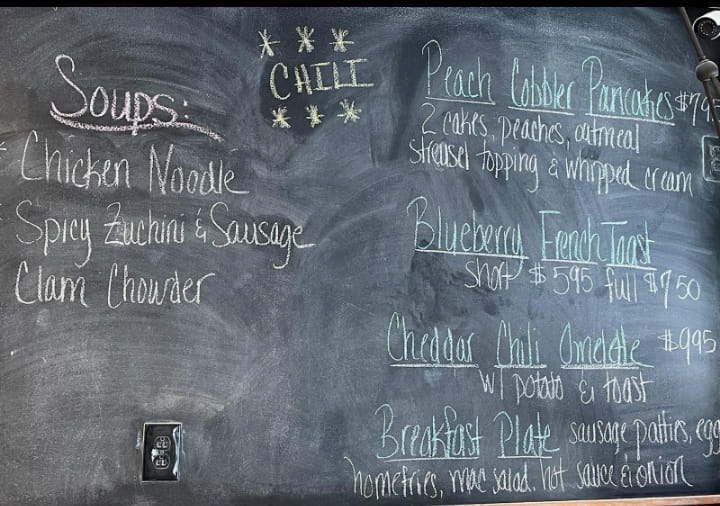 Soups:
Chicken Noodle
Spicy Zuchini & Sausage
Clam Chowder
* * *
CHILI
* * *
Peach Cobbler Pancakes
2 cakes, peaches, oatmeal
streusel topping & whipped cream
Blueberry French Toast
short $5.95 full $7.50
Cheddar Chili Omelette $9.95
w/ potato & toast
Breakfast Plate sausage patties,
homefries, mac salad, hot sauce & onion